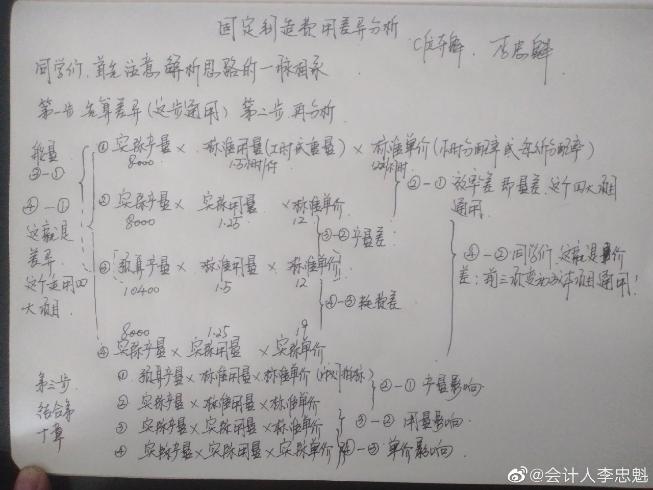 固定制造费用差异分析
李忠魁
同学们，首先注意解析思路的一脉相承
第一步 先算差异（这步通用） 第二步 再分析
① 实际产量 × 标准用量（工时或重量） × 标准单价（小时分配率或每公斤分配率）
8000 1.5小时/件
② 实际产量 × 实际用量 × 标准单价
8000 1.25 12
②-① 效率差 即量差，这个四大项目通用
③-② 产量差
③ 预算产量 × 标准用量 × 标准单价
10400 1.5 12
④-③ 耗费差
④-② 同学们，这就是价差：前三项变动成本项目通用！
8000 1.25 19
④ 实际产量 × 实际用量 × 实际单价
能量
③-①
④-①
这就是
差异
这个适用四
大项目.
第三步
结合第
十章
① 预算产量 × 标准用量 × 标准单价
② 实际产量 × 标准用量 × 标准单价
②-① 产量影响
③ 实际产量 × 实际用量 × 标准单价
③-② 用量影响
④ 实际产量 × 实际用量 × 实际单价
④-③ 单价影响.
@会计人李忠魁